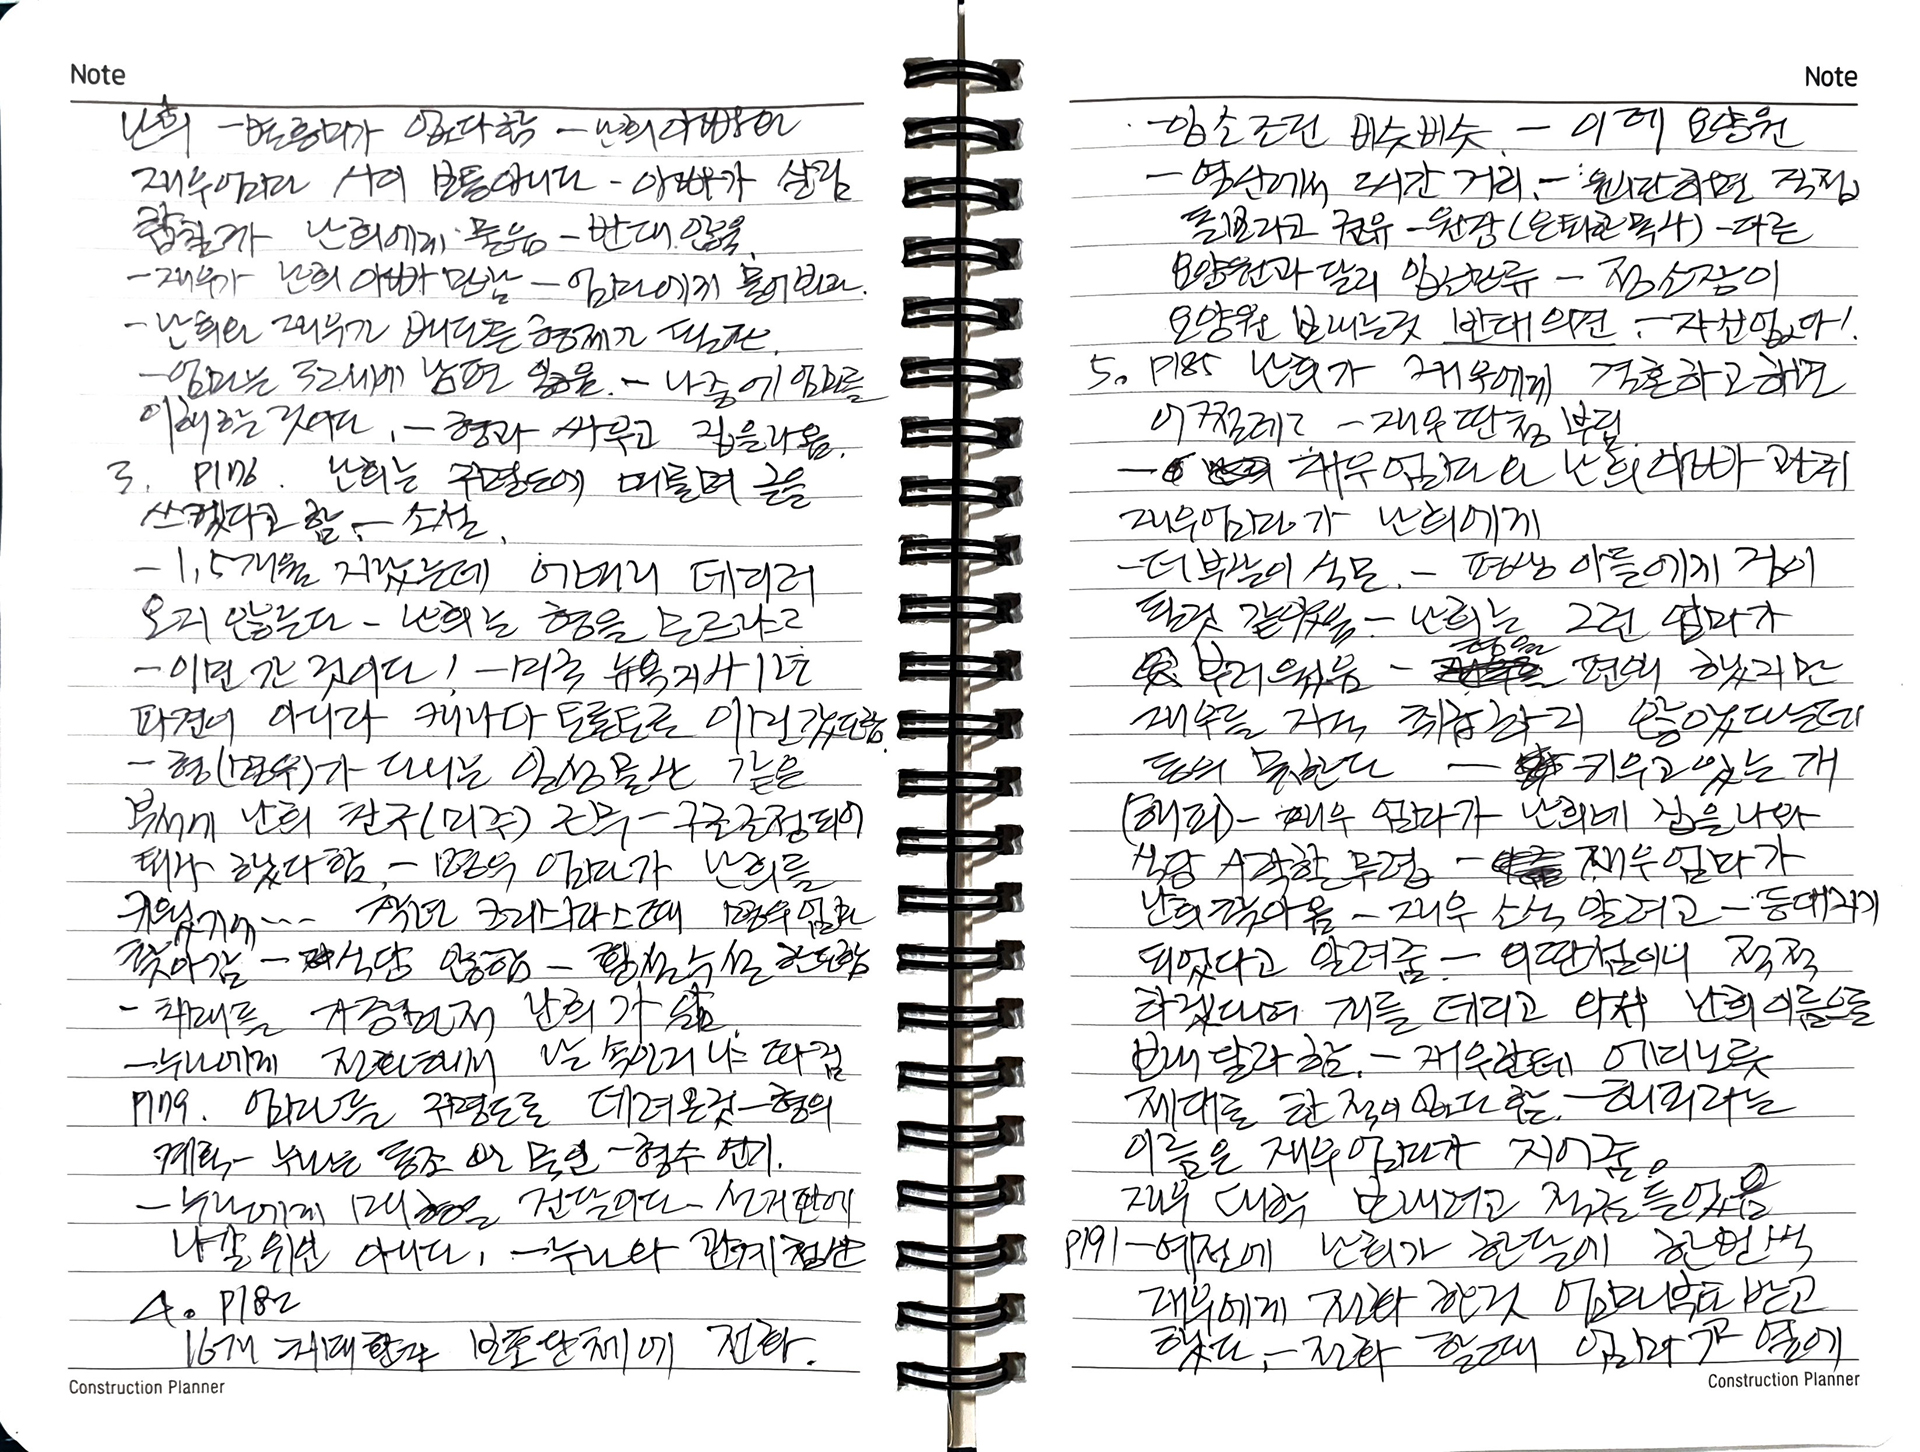 Note
난희 - 가 없다함 - 난희아빠와
재우엄마 사이 보통아니다 - 아빠가 살림
합칠까 난희에게 물음 - 반대 않음.
- 재우가 난희 아빠 만남 - 엄마에게 물어보라.
- 난희와 재우가 배다른 형제가
- 엄마는 32세에 남편 잃음. - 나중에 엄마를
이해하는 것이다. - 형과 싸우고 집을나옴.
3. P176. 난희는 귀명도에 머물며 글을
쓰겠다고 함. - 소설.
- 1,5개월 지났는데 어머니 데리러
오지 않는다 - 난희는 형을 모르냐고
- 이민 간 것이다! - 미국 뉴욕지사 1년
파견이 아니라 캐나다 토론토로 이민갔다함.
- 형(명우)가 다니는 일성물산 같은
부서에 난희 친구(미주) 근무 -
퇴사 했다함. - 명우 엄마가 난희를
키웠기에... 작년 크리스마스때 명우엄마
찾아감 - 식담 안함 - 횡설수설 한다함
- 치매를 난희가 앎.
- 누나에게 전화해서 날 속이려냐 따짐
P179. 엄마를 귀명도로 데려온것 - 형의
계획 - 누나는 동조 및 묵인 - 형수 연기.
- 누나에게 매형은 건달이다 - 선거판에
나갈 위인 아니다. - 누나와 관계 청산
4. P182
16개 치매환자 보호단체에 전화.
Construction Planner
Note
입소조건 비슷비슷. - 이헤 요양원
- 에서 2시간 거리. - 원한다면 직접
들르라고 권유 - 원장(은퇴한목사) - 다른
요양원과 달리 입소만류 - 정소장이
요양원 보내는것 반대의견 - 자신없어!
5. P185 난희가 재우에게 결혼하고하면
어쩔래? - 재우딴청 부림.
- 재우엄마와 난희아빠 관계
재우엄마가 난희에게
- 더부살이 식모. - 평생 아들에게 짐이
될것 같았음 - 난희는 그런 엄마가
부러웠음 - 형을 편애 했지만
재우를 지극 취급하지 않았다는데
동의 못한다 - 키우고있는 개
(해피) - 재우 엄마가 난희네 집을나와
식당 시작할 무렵 - 재우엄마가
난희찾아옴 - 재우 소식 알려고 - 등대지기
되었다고 알려줌. - 외딴섬이니 적적
하겠다며 개를 데리고 와서 난희이름으로
보내 달라 함. - 재우한테 에미노릇
제대로 한 적이 없다 함. - 해피라는
이름은 재우엄마가 지어줌.
재우 대학 보내려고 적금들었음
P191 - 예전에 난희가 한달에 한번씩
재우에게 전화 한것 엄마부탁 받고
했다. - 전화 할때 엄마가 옆에
Construction Planner